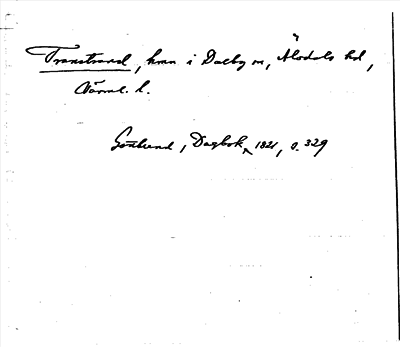 Transtrand, hmn i Dalby sn, Älvdals hd,
Värml. l.
Gottlund, Dagbok, 1821, s. 329